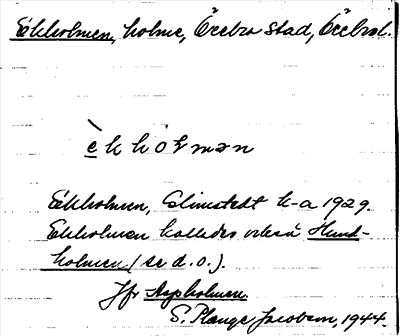 Ekholmen, holme, Örebro stad, Örebro l.
èkhòḷmən
Ekholmen, Almestedt k-a 1929.
Ekholmen kallades också Hund-
holmen (se d.o.).
Jfr Aspholmen.
S. Plange Jacobson, 1944.